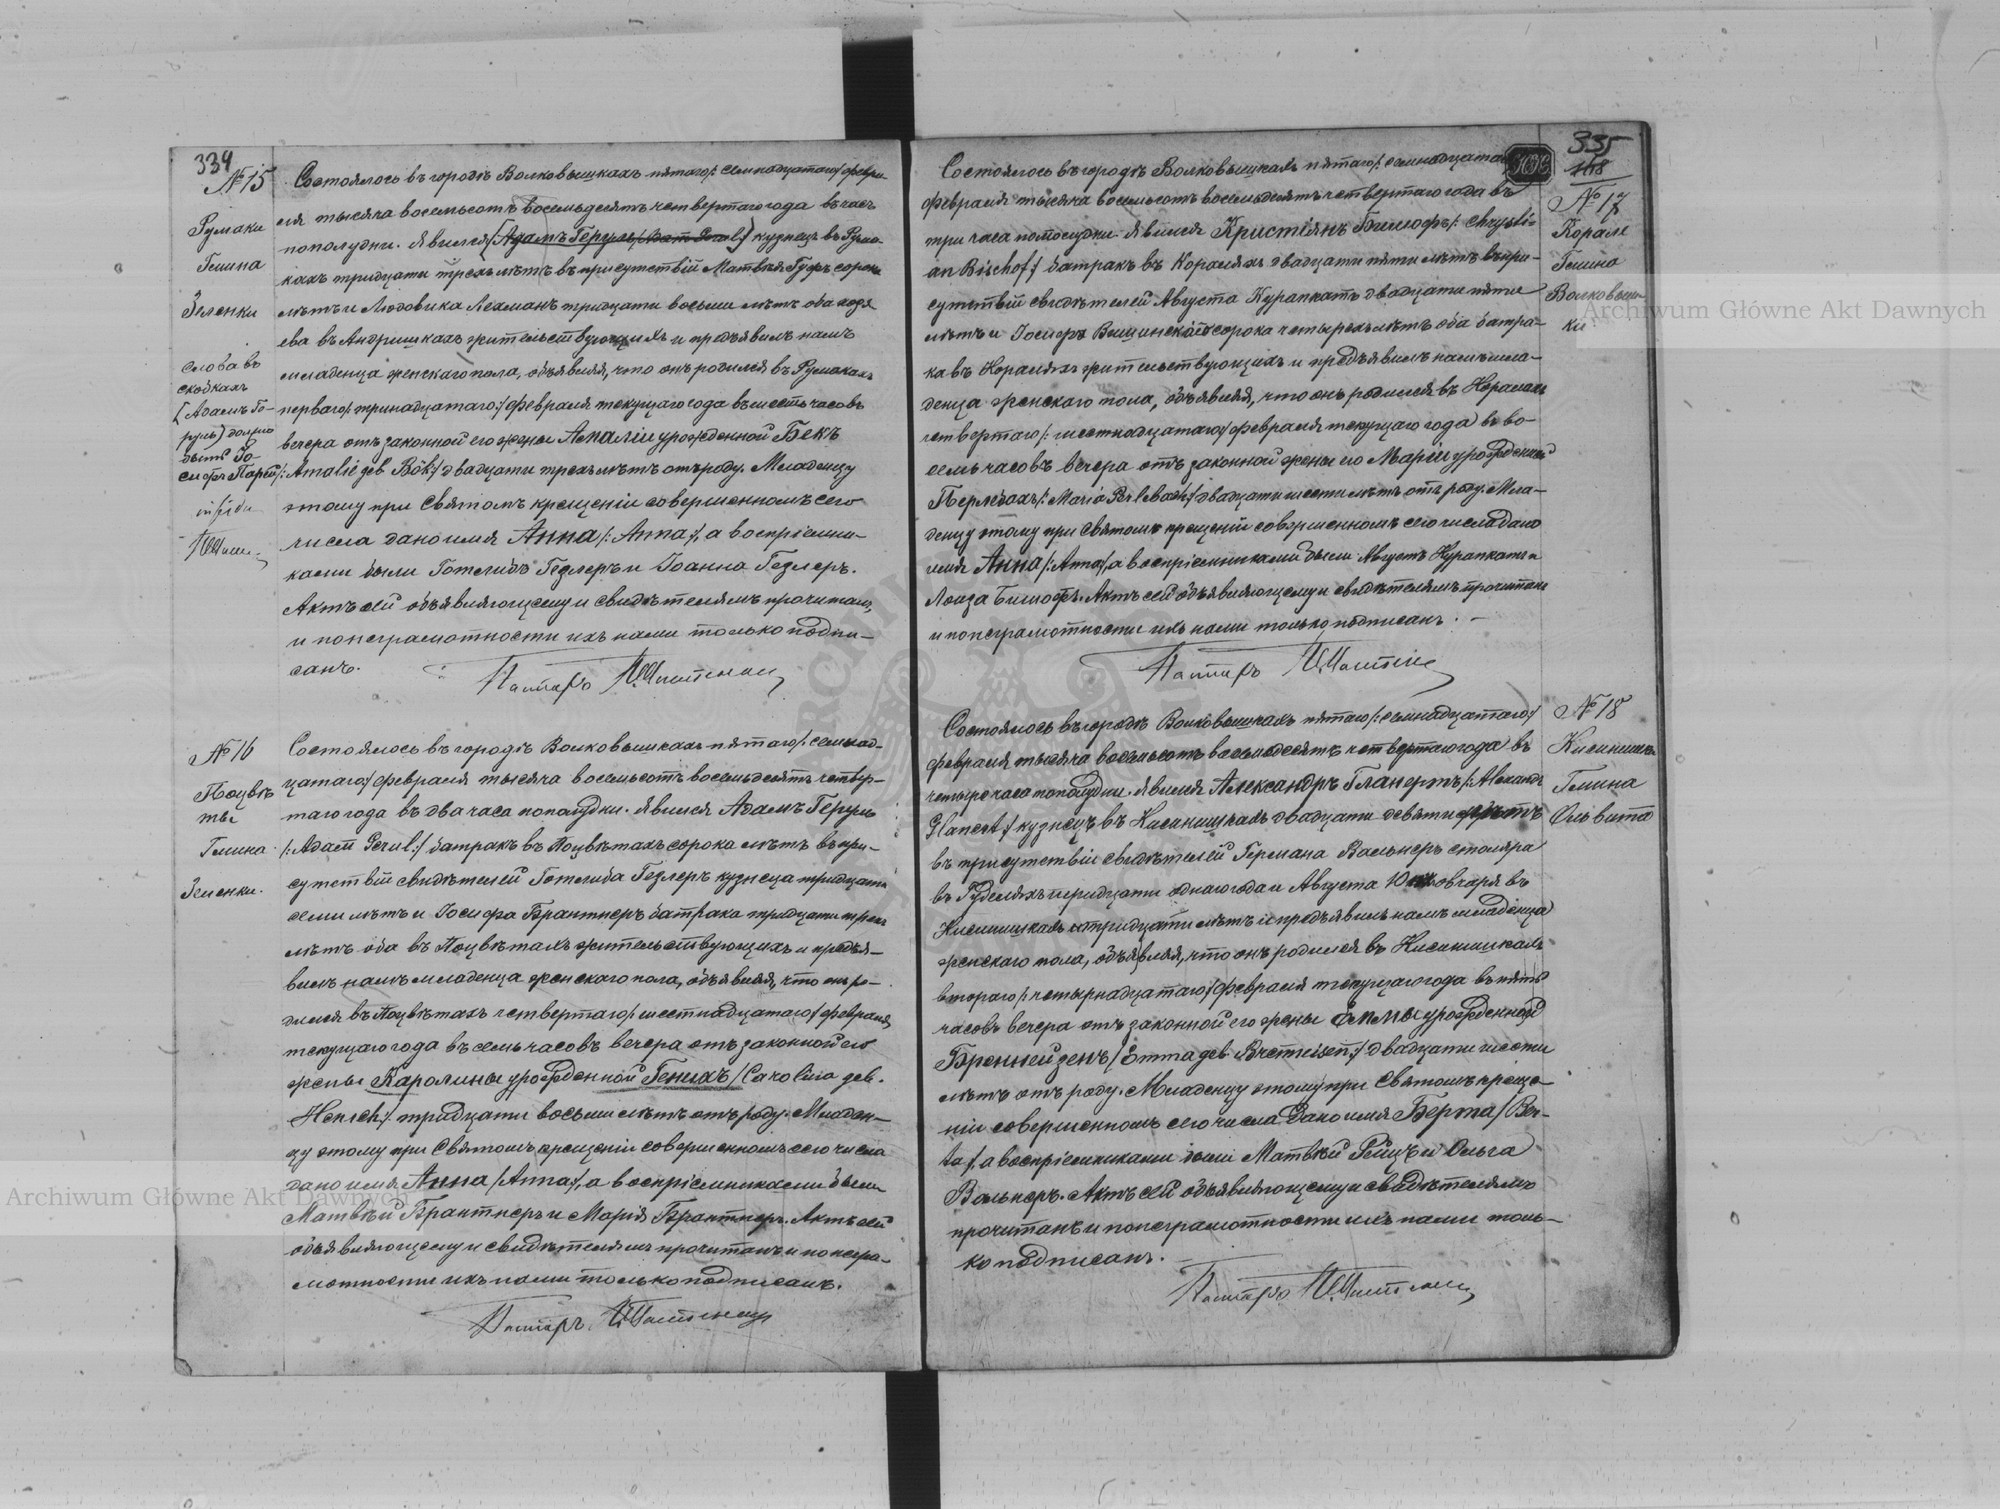 334
№ 15
Румаки
Гмина
Зеленки
Слова въ
скобкахъ
(Адамъ Ге-
руль) должно
быть Іо-
сифъ
in fidem
Состоялось въ городѣ Волковышкахъ пятаго /: семнадцатаго :/ февра-
ля тысяча восемьсотъ восемьдесятъ четвертаго года въ часъ
пополудни. Явился (Адамъ Геруль /: Adam Gerul :/) кузнецъ въ Рума-
кахъ тридцати трехъ лѣтъ въ присутствіи Матвѣя Гуфъ сорока
лѣтъ и Людовика Лехманъ тридцати восьми лѣтъ оба
въ Андришкахъ жительствующихъ и предъявилъ намъ
младенца женскаго пола, объявляя, что онъ родился въ Румакахъ
перваго /: тринадцатаго :/ февраля текущаго года въ шесть часовъ
вечера отъ законной его жены Амаліи урожденной Бекъ
/: Amalie geb. Bök :/ двадцати трехъ лѣтъ отъ роду. Младенцу
этому при Святомъ крещеніи совершенномъ сего
числа дано имя Анна /: Anna :/, а воспріемни-
ками были Готлибъ Гезлеръ и Іоанна Гезлеръ.
Актъ сей объявляющему и свидѣтелямъ прочитанъ,
и по неграмотности ихъ нами только подпи-
санъ.
Пасторъ
№ 16
Поцвѣ
ты
Гмина
Зеленки.
Состоялось въ городѣ Волковышкахъ пятаго /: семнад-
цатаго :/ февраля тысяча восемьсотъ восемьдесятъ четвер-
таго года въ два часа пополудни. Явился Адамъ Геруль
/: Adam Gerul :/ батракъ въ Поцвѣтахъ сорока лѣтъ въ при-
сутствіи свидѣтелей Готлиба Гезлеръ кузнеца тридцати
семи лѣтъ и Іосифа Брантнеръ батрака тридцати трехъ
лѣтъ оба въ Поцвѣтахъ жительствующихъ и предъя-
вилъ намъ младенца женскаго пола, объявляя, что онъ ро-
дился въ Поцвѣтахъ четвертаго /: шестнадцатаго :/ февраля
текущаго года въ семь часовъ вечера отъ законной его
жены Каролины урожденной Генихъ /: Carolina geb.
Henich :/ тридцати восьми лѣтъ отъ роду. Младен-
цу этому при Святомъ крещеніи совершенномъ сего числа
дано имя Анна /: Anna :/, а воспріемниками были
Матвѣй Брантнеръ и Марія Брантнеръ. Актъ сей
объявляющему и свидѣтелямъ прочитанъ и по негра-
мотности ихъ нами только подписанъ.
Пасторъ
335
168
№ 17
Корале
Гмина
Волковыш-
ки
Состоялось въ городѣ Волковышкахъ пятаго /: семнадцатаго
февраля тысяча восемьсотъ восемьдесятъ четвертаго года въ
три часа пополудни. Явился Кристіянъ Бишофъ /: Chrysti-
an Bischof :/ батракъ въ Кораляхъ двадцати пяти лѣтъ въ при-
сутствіи свидѣтелей Августа Курапкатъ двадцати пяти
лѣтъ и Іосифа сорока четырехъ лѣтъ оба батра-
ка въ Кораляхъ жительствующихъ и предъявилъ намъ мла-
денца женскаго пола, объявляя, что онъ родился въ Кораляхъ
четвертаго /: шестнадцатаго :/ февраля текущаго года въ во-
семь часовъ вечера отъ законной жены его Маріи урожденной
Перлебахъ /: Maria Perlebach :/ двадцати шести лѣтъ отъ роду. Мла-
денцу этому при Святомъ крещеніи совершенномъ сего числа дано
имя Анна /: Anna :/, а воспріемниками были Августъ Курапкатъ и
Луиза Бишофъ. Актъ сей объявляющему и свидѣтелямъ прочитанъ
и по неграмотности ихъ нами только подписанъ. —
Пасторъ
№ 18
Кисинишк.
Гмина
Ольвита
Состоялось въ городѣ Волковышкахъ пятаго /: семнадцатаго :/
февраля тысяча восемьсотъ восемьдесятъ четвертаго года въ
четыре часа пополудни. Явился Александръ Гланертъ /: Alexandr
Glanert :/ кузнецъ въ Кисинишкахъ двадцати девяти лѣтъ
въ присутствіи свидѣтелей Германа Вальнеръ столяра
въ Гуделяхъ тридцати одного года и Августа овчаря въ
Кисинишкахъ тридцати лѣтъ и предъявилъ намъ младенца
женскаго пола, объявляя, что онъ родился въ Кисинишкахъ
втораго /: четырнадцатаго :/ февраля текущаго года въ пять
часовъ вечера отъ законной его жены Еммы урожденной
Бремнейзенъ /: Emma geb. Bremneisen :/ двадцати шести
лѣтъ отъ роду. Младенцу этому при Святомъ креще-
ніи совершенномъ сего числа дано имя Берта /: Ber-
ta :/, а воспріемниками были Матвѣй Рейцъ и Ольга
Вальнеръ. Актъ сей объявляющему и свидѣтелямъ
прочитанъ и по неграмотности ихъ нами толь-
ко подписанъ.
Пасторъ
Archiwum Główne Akt Dawnych
Archiwum Główne Akt Dawnych